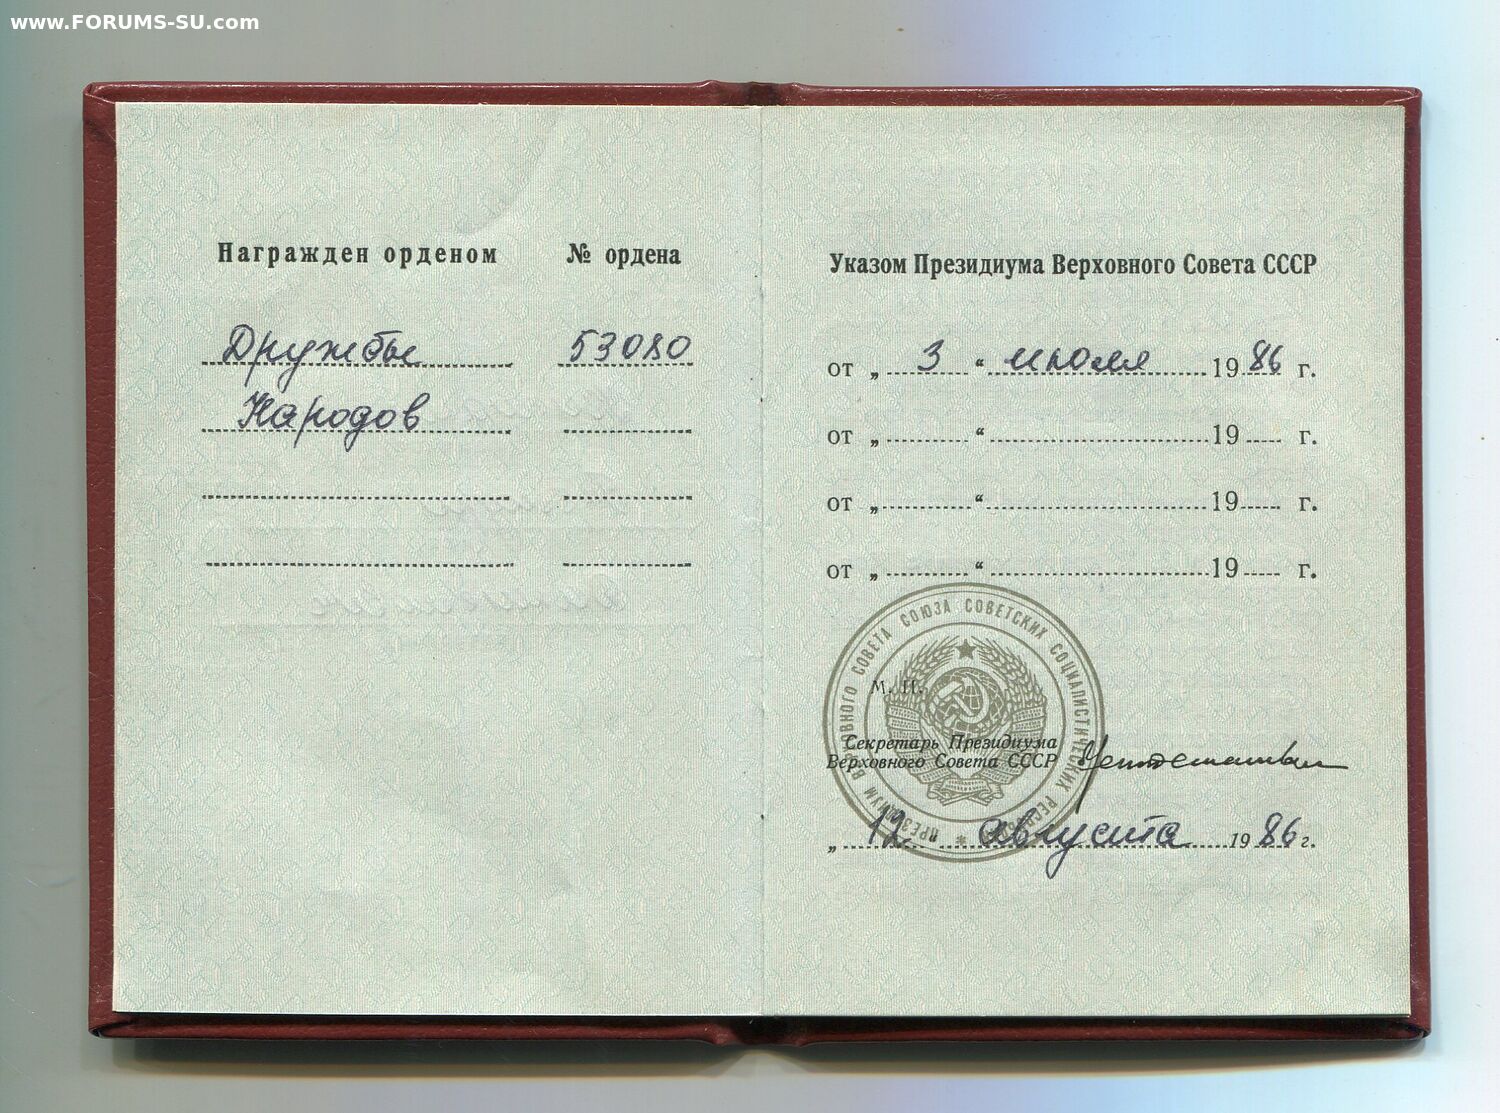 www.FORUMS-SU.com
Награжден орденом № ордена
Дружбы 53080
Народов
Указом Президиума Верховного Совета СССР
от „ 3 “ июля 1986 г.
от „ “ 19 г.
от „ “ 19 г.
от „ “ 19 г.
ПРЕЗИДИУМ ВЕРХОВНОГО СОВЕТА СОЮЗА СОВЕТСКИХ СОЦИАЛИСТИЧЕСКИХ РЕСПУБЛИК
М. П.
Секретарь Президиума
Верховного Совета СССР
„ 12 “ августа 1986 г.